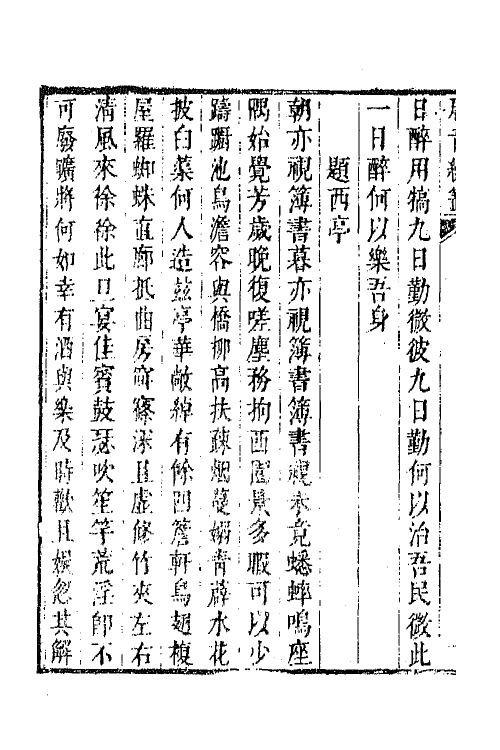 日醉用犒九日勤微彼九日勤何以治吾民微此
一日醉何以樂吾身
題西亭
朝亦視簿書暮亦視簿書簿書視未竟蟋蟀鳴座
隅始覺芳歲晚復嗟塵務拘西園景多暇可以少
躊躇池鳥澹容與橋柳高扶疎烟蔓嫋青薜水花
披白蕖何人造茲亭華敞綽有餘四簷軒鳥翅複
屋羅蜘蛛直廊抵曲房窅窱深且虛修竹夾左右
清風來徐徐此且宴佳賓鼓瑟吹笙竽荒淫卽不
可廢曠將何如幸有酒與樂及時歡且娛忽其解